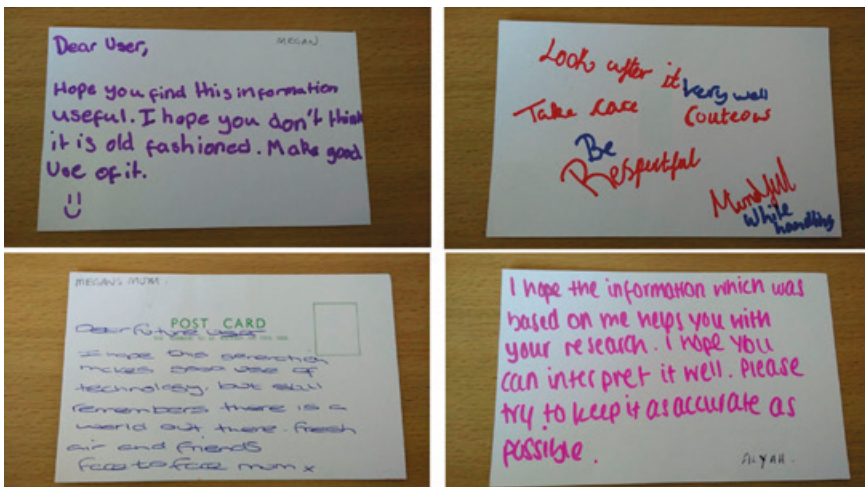 Dear User,
MEGAN
Hope you find this information
useful. I hope you don't think
it is old fashioned. Make good
Use of it.
Look after it very well
Take care Couteous
Be
Respectful
Mindful
While
handling
MEGANS MUM.
POST CARD
Dear future user
I hope this generation
makes good use of
technology, but still
remembers there is a
world out there. Fresh
air and friends
face to face mum x
I hope the information which was
based on me helps you with
your research. I hope you
can interpret it well. Please
try to keep it as accurate as
possible.